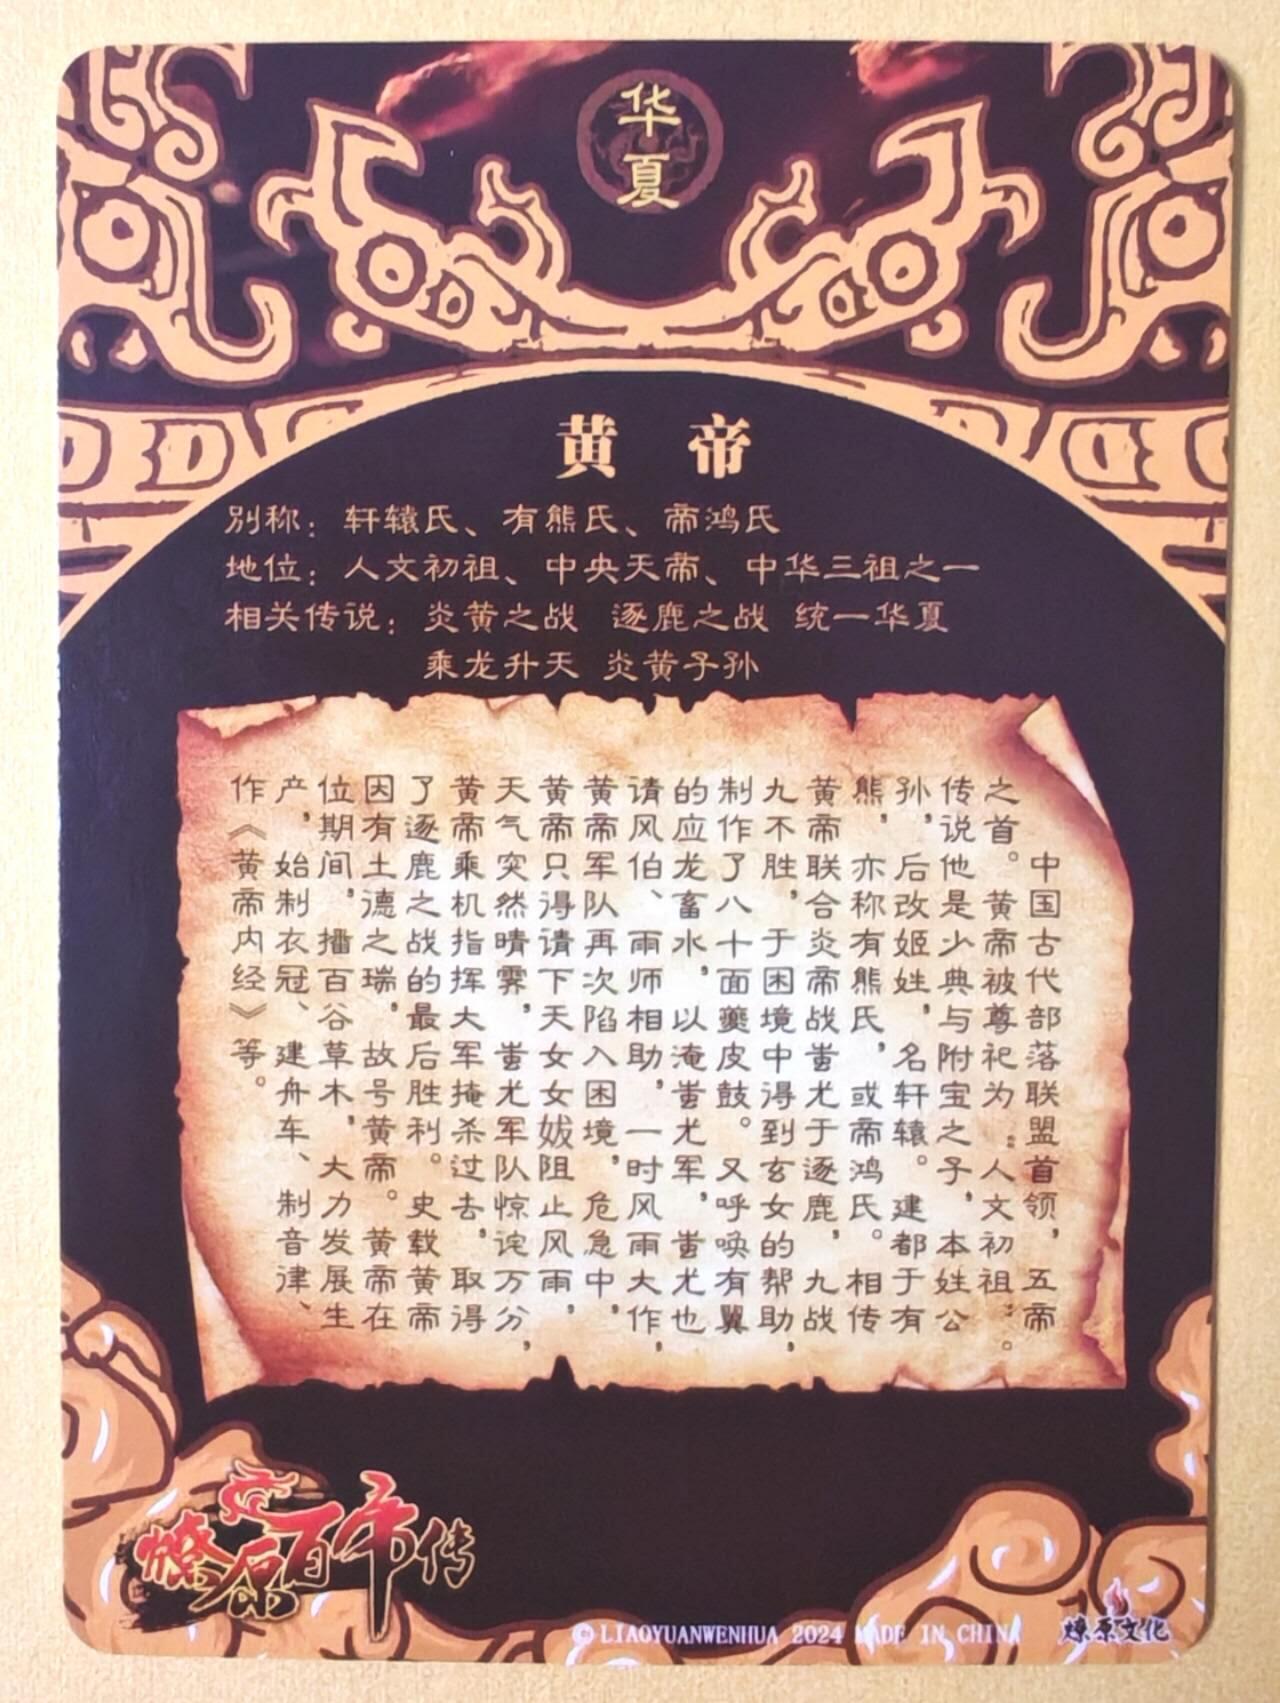 华
夏
黄帝
别称：轩辕氏、有熊氏、帝鸿氏
地位：人文初祖、中央天帝、中华三祖之一
相关传说：炎黄之战 逐鹿之战 统一华夏
乘龙升天 炎黄子孙
中国古代部落联盟首领，五帝
之首。黄帝被尊祀为“人文初祖”。
传说他是少典与附宝之子，本姓公
孙，后改姬姓，名轩辕。建都于有
熊，亦称有熊氏，或帝鸿氏。相传
黄帝联合炎帝战蚩尤于逐鹿，九战
九不胜，于困境中得到玄女的帮助，
制作了八十面夔皮鼓。又呼唤有翼
的应龙畜水，以淹蚩尤军，蚩尤也
请风伯、雨师相助，一时风雨大作，
黄帝军队再次陷入困境，危急中，
黄帝只得请下天女女妭阻止风雨，
天气突然晴霁，蚩尤军队惊诧万分，
黄帝乘机指挥大军掩杀过去，取得
了逐鹿之战的最后胜利。史载黄帝
因有土德之瑞，故号黄帝。黄帝在
位期间，播百谷草木，大力发展生
产，始制衣冠、建舟车、制音律、
作《黄帝内经》等。
燎原百帝传
©LIAOYUANWENHUA 2024 MADE IN CHINA
燎原文化